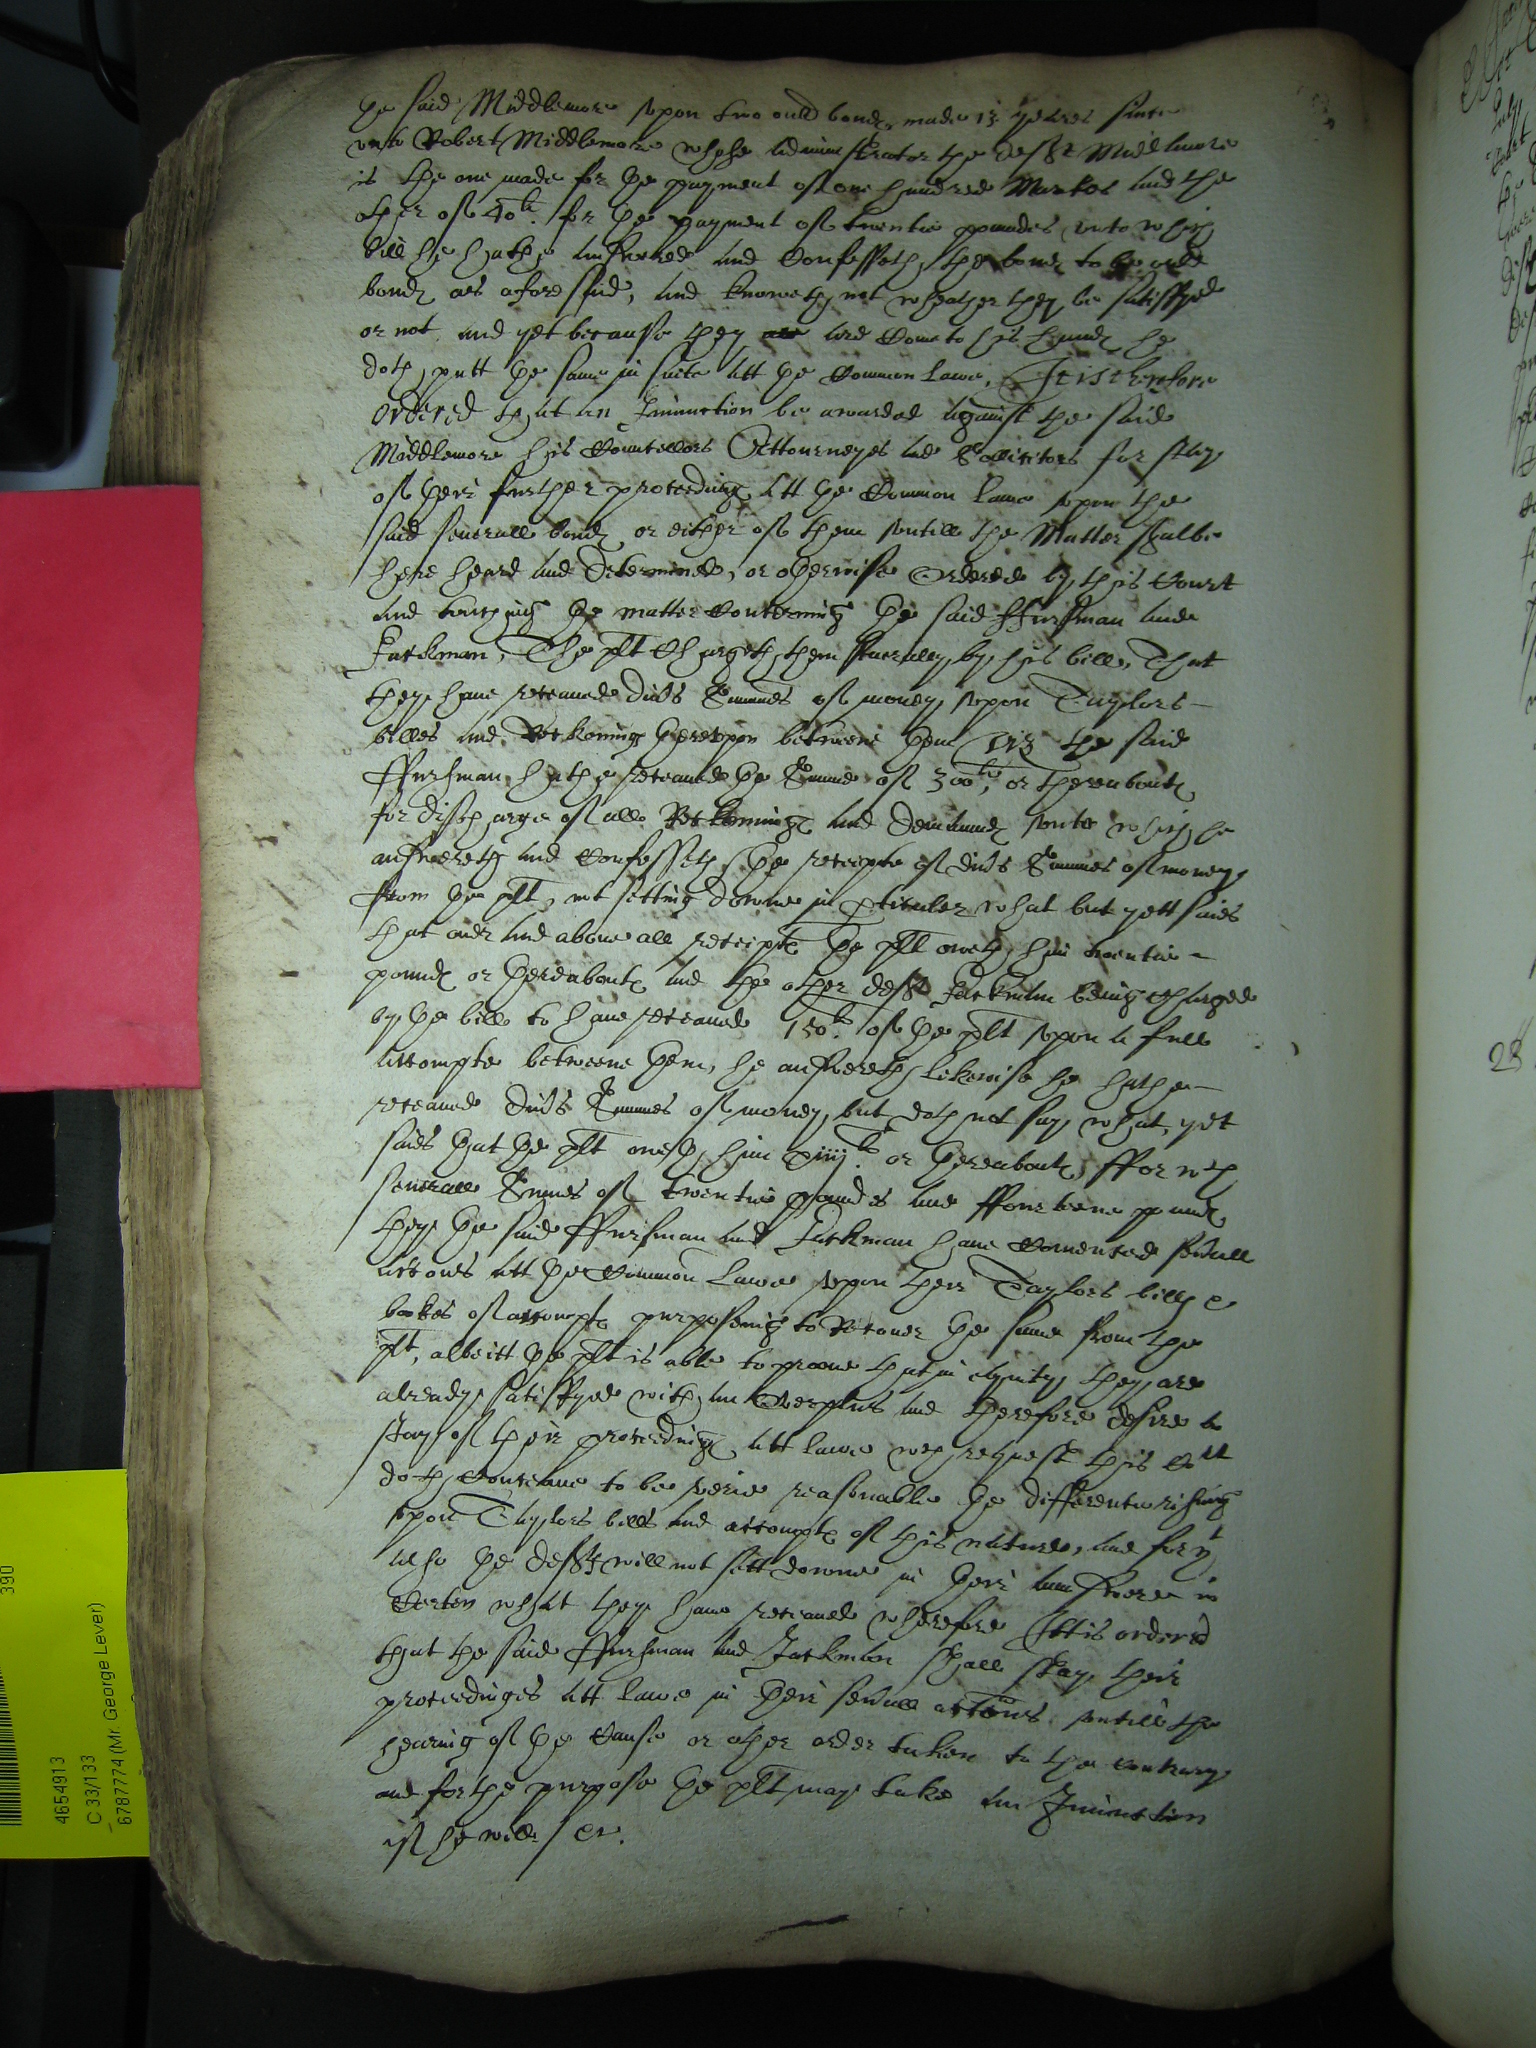 the said Middlemore vpon two ould bonds made 13 yeares since
vnto Robert Middlemore whose administrator the deft Middlemore
is the one made for the payment of one hundred Markes and the
other of 40li. for the payment of twentie poundes vnto which
bill he hathe answered and Confesseth the bonds to be ould
bonds as aforesaid, and knoweth not wheather they be satisfyed
or not, and yet because they are Come to his hands he
doth putt the same in suite att the Common Lawe, It is therefore
Ordered that an Iniunction be awarded against the said
Middlemore his Councellors Attourneyes and Sollicitors for stay
of their further proceedings att the Common Lawe vpon the
said seuerall bonds or either of them vntill the Matter shalbe
here heard and determined, or otherwise Ordered by this Court
And touching the matter Concerning the said ffursman and
Jackman, The plt Chargeth them seuerally by his bill, That
they haue receaued diuers Summes of money vpon Taylors
billes and Reckonings therevpon betweene them viz the said
ffursman hathe receaued the Summe of 300li, or thereaboutes
for discharge of all Reckonings and demaunds vnto which he
answereth and Confesseth the receipte of diuers Summes of money
from the plt, not setting downe in perticuler what but yett saies
that ouer and aboue all receipts the plt oweth him twentie
pounds or thereabouts and the other deft Jackman being Charged
by the bill to haue receaued 150li of the plt vpon a full
accompte betweene them, he answereth likewise he hathe
receaued diuers Summes of money, but doth not say what, yet
saies that the plt oweth him xiiijli. or thereabouts, ffor wch
seuerall Summes of twentie poundes and ffourteene pounds
they the said ffursman and Jackman haue Comenced seuall
accons att the Common Lawe vpon their Taylors bills &
bookes of accompts purposeing to Recouer the same from the
plt, albeitt the plt is able to prooue that in equity they are
already satisfyed with an Overplus and therefore desires a
stay of their proceedings att lawe wch request this Cort
doth Conceaue to be verie reasonable the difference rising
vpon Taylors bills and accompts of this nature, and for yt
also the defts will not sett downe in their aunswere in
Certen what they haue receaued wherefore Itt is ordered
that the said ffursman and Jackman shall stay their
proceedinges att lawe in their seuall accons vntill the
hearing of the Cause or other order taken to the contrary
and for the purpose the plt may take an Iniunction
if he will / Ex.
390
4654913
C 33/133
6787774 (Mr. George Lever)
28